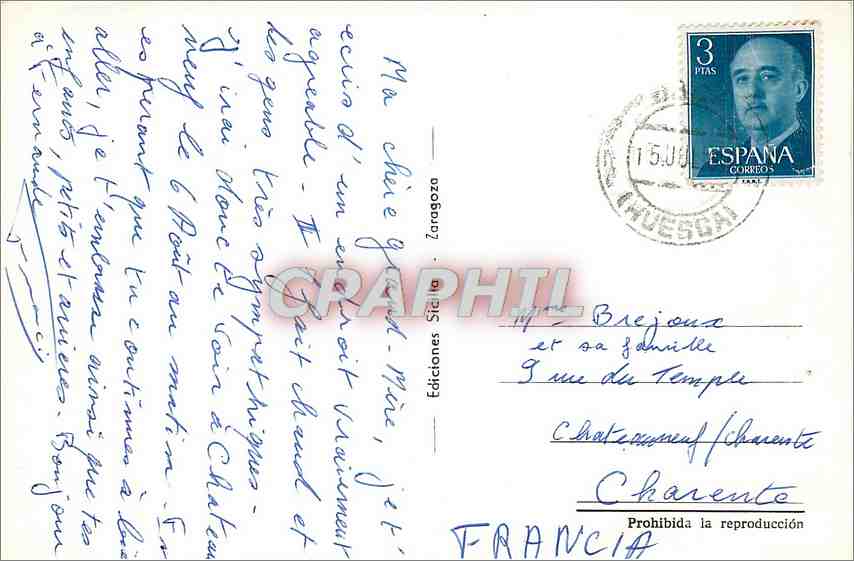 Ma chère grand-Mère, je t'
ecris d'un endroit vraiment
agréable - Il fait chaud et
les gens très sympathiques -
J'irai donc te voir à Chateau
neuf le 6 Août au matin. En
esperant que tu continues à bien
aller, je t'embrasse ainsi que tes
enfants, petits et arrières. Bonjour
à Fernande
Ediciones Sicilia - Zaragoza
3
PTAS
ESPAÑA
CORREOS
F.N.M.T.
15 JUL
(HUESCA)
CPARPHIL
Mme Brejoux
et sa famille
9 rue du Temple
Chateauneuf/Charente
Charente
Prohibida la reproducción
FRANCIA